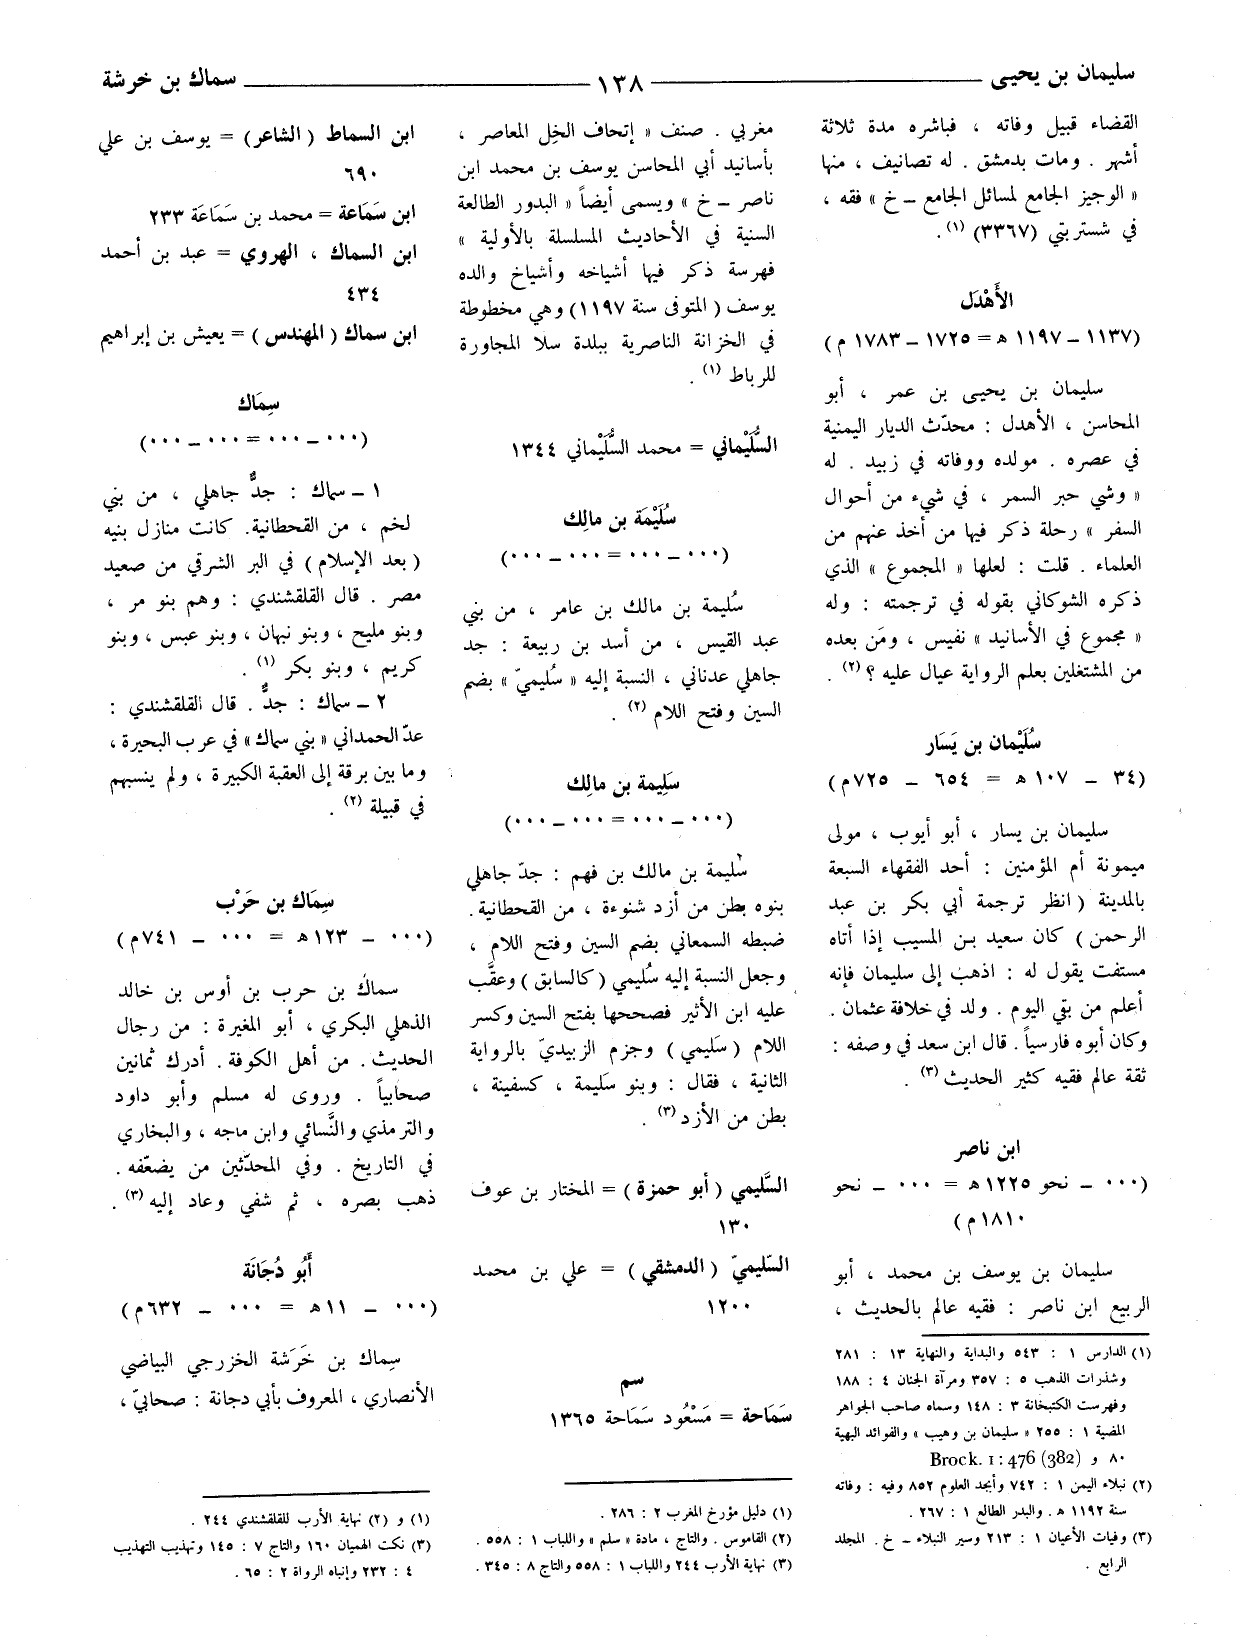 سليمان بن يحيى ١٣٨ سماك بن خرشة
القضاء قبيل وفاته ، فباشره مدة ثلاثة
أشهر . ومات بدمشق . له تصانيف ، منها
« الوجيز الجامع لمسائل الجامع ـ خ » فقه ،
في شستربتي (٣٣٦٧) (١).
الأَهْدَل
(١١٣٧ ـ ١١٩٧ هـ = ١٧٢٥ ـ ١٧٨٣ م)
سليمان بن يحيى بن عمر ، أبو
المحاسن ، الأهدل : محدّث الديار اليمنية
في عصره . مولده ووفاته في زبيد . له
« وشي حبر السمر ، في شيء من أحوال
السفر » رحلة ذكر فيها من أخذ عنهم من
العلماء . قلت : لعلها « المجموع » الذي
ذكره الشوكاني بقوله في ترجمته : وله
« مجموع في الأسانيد » نفيس ، ومَن بعده
من المشتغلين بعلم الرواية عيال عليه ؟ (٢) .
سُلَيْمان بن يَسَار
(٣٤ ـ ١٠٧ هـ = ٦٥٤ ـ ٧٢٥م)
سليمان بن يسار ، أبو أيوب ، مولى
ميمونة أم المؤمنين : أحد الفقهاء السبعة
بالمدينة (انظر ترجمة أبي بكر بن عبد
الرحمن) كان سعيد بن المسيب إذا أتاه
مستفت يقول له : اذهب إلى سليمان فإنه
أعلم من بقي اليوم . ولد في خلافة عثمان .
وكان أبوه فارسياً . قال ابن سعد في وصفه :
ثقة عالم فقيه كثير الحديث (٣) .
ابن ناصر
(٠٠٠ ـ نحو ١٢٢٥هـ = ٠٠٠ ـ نحو
١٨١٠م)
سليمان بن يوسف بن محمد ، أبو
الربيع ابن ناصر : فقيه عالم بالحديث ،
(١) الدارس ١ : ٥٤٣ والبداية والنهاية ١٣ : ٢٨١
وشذرات الذهب ٥ : ٣٥٧ ومرآة الجنان ٤ : ١٨٨
وفهرست الكتبخانة ٣ : ١٤٨ وسماه صاحب الجواهر
المضية ١ : ٢٥٥ « سليمان بن وهيب » والفوائد البهية
٨٠ و Brock. 1 : 476 (382)
(٢) نبلاء اليمن ١ : ٧٤٢ وأبجد العلوم ٨٥٢ وفيه : وفاته
سنة ١١٩٢ هـ . والبدر الطالع ١ : ٢٦٧ .
(٣) وفيات الأعيان ١ : ٢١٣ وسير النبلاء ـ خ . المجلد
الرابع .
مغربي . صنف « إتحاف الخِل المعاصر ،
بأسانيد أبي المحاسن يوسف بن محمد ابن
ناصر ـ خ » ويسمى أيضاً « البدور الطالعة
السنية في الأحاديث المسلسلة بالأولية »
فهرسة ذكر فيها أشياخه وأشياخ والده
يوسف ( المتوفى سنة ١١٩٧ ) وهي مخطوطة
في الخزانة الناصرية ببلدة سلا المجاورة
للرباط (١) .
السُّلَيْماني = محمد السُّلَيْماني ١٣٤٤
سُلَيْمَة بن مالِك
(٠٠٠ ـ ٠٠٠ = ٠٠٠ ـ ٠٠٠)
سُليمة بن مالك بن عامر ، من بني
عبد القيس ، من أسد بن ربيعة : جد
جاهلي عدناني ، النسبة إليه « سُليميّ » بضم
السين وفتح اللام (٢) .
سَلِيمة بن مالِك
(٠٠٠ ـ ٠٠٠ = ٠٠٠ ـ ٠٠٠)
سَليمة بن مالك بن فهم : جدّ جاهلي
بنوه بطن من أزد شنوءة ، من القحطانية .
ضبطه السمعاني بضم السين وفتح اللام ،
وجعل النسبة إليه سُليمي ( كالسابق ) وعقَّب
عليه ابن الأثير فصححها بفتح السين وكسر
اللام ( سَليمي ) وجزم الزبيديّ بالرواية
الثانية ، فقال : وبنو سَليمة ، كسفينة ،
بطن من الأزد (٣) .
السَّليمي ( أبو حمزة ) = المختار بن عوف
١٣٠
السّليميّ ( الدمشقي ) = علي بن محمد
١٢٠٠
سم
سَمَاحة = مَسْعُود سَمَاحة ١٣٦٥
(١) دليل مؤرخ المغرب ٢ : ٢٨٦ .
(٢) القاموس . والتاج ، مادة « سلم » واللباب ١ : ٥٥٨ .
(٣) نهاية الأرب ٢٤٤ واللباب ١ : ٥٥٨ والتاج ٨ : ٣٤٥ .
ابن السماط ( الشاعر ) = يوسف بن علي
٦٩٠
ابن سَمَاعة = محمد بن سَمَاعَة ٢٣٣
ابن السماك ، الهروي = عبد بن أحمد
٤٣٤
ابن سماك ( المهندس ) = يعيش بن إبراهيم
سِمَاك
(٠٠٠ ـ ٠٠٠ = ٠٠٠ ـ ٠٠٠)
١ ـ سماك : جدٌّ جاهلي ، من بني
لخم ، من القحطانية . كانت منازل بنيه
( بعد الإسلام ) في البر الشرقي من صعيد
مصر . قال القلقشندي : وهم بنو مر ،
وبنو مليح ، وبنو نبهان ، وبنو عبس ، وبنو
كريم ، وبنو بكر (١) .
٢ ـ سماك : جدٌّ . قال القلقشندي :
عدّ الحمداني « بني سماك » في عرب البحيرة ،
وما بين برقة إلى العقبة الكبيرة ، ولم ينسبهم
في قبيلة (٢) .
سِمَاك بن حَرْب
(٠٠٠ ـ ١٢٣هـ = ٠٠٠ ـ ٧٤١م)
سماك بن حرب بن أوس بن خالد
الذهلي البكري ، أبو المغيرة : من رجال
الحديث . من أهل الكوفة . أدرك ثمانين
صحابياً . وروى له مسلم وأبو داود
والترمذي والنَّسائي وابن ماجه ، والبخاري
في التاريخ . وفي المحدّثين من يضعّفه .
ذهب بصره ، ثم شفي وعاد إليه (٣) .
أَبُو دُجَانَة
(٠٠٠ ـ ١١هـ = ٠٠٠ ـ ٦٣٢م)
سِماك بن خَرَشة الخزرجي البياضي
الأنصاري ، المعروف بأبي دجانة : صحابيّ ،
(١) و (٢) نهاية الأرب للقلقشندي ٢٤٤ .
(٣) نكت الهميان ١٦٠ والتاج ٧ : ١٤٥ وتهذيب التهذيب
٤ : ٢٣٢ وإنباه الرواة ٢ : ٦٥ .